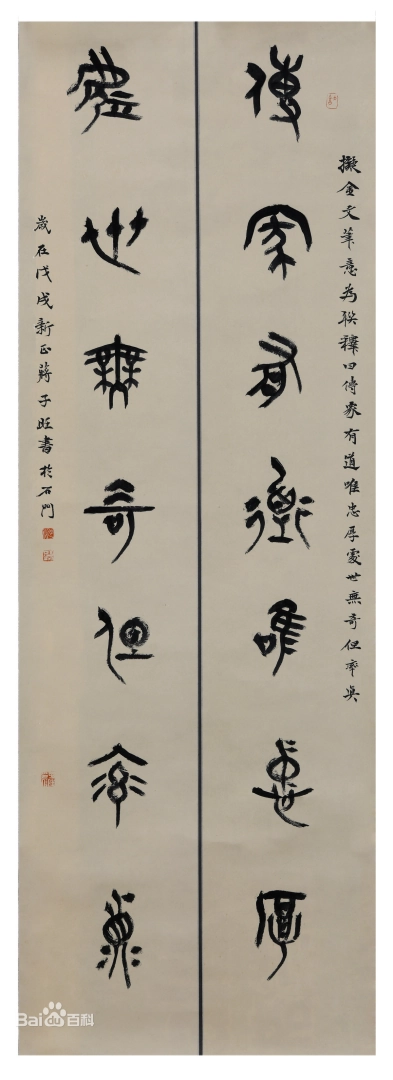 擬金文筆意為聯釋曰傳家有道唯忠厚處世無奇但率真
傳家有道唯忠厚
處世無奇但率真
歲在戊戌新正蔣子旺書於石門
Baidu百科